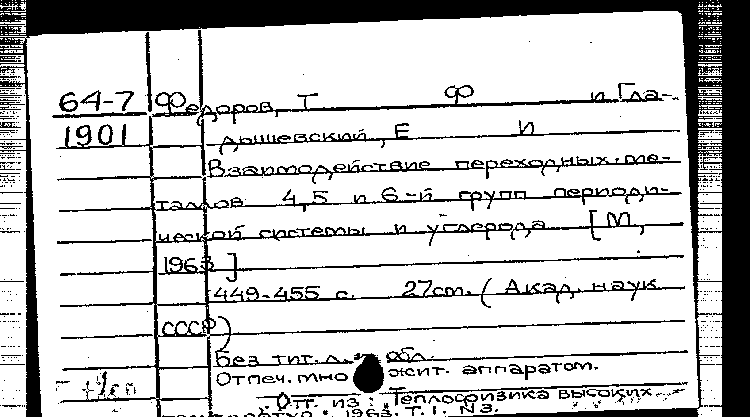 64-7 Федоров, Т Ф и Гла-
1901 дышевский, Е И
Взаимодействие переходных ме-
таллов 4,5 и 6-й групп периоди-
ческой системы и углерода [М,
1963]
449-455 с. 27см. (Акад. наук
СССР)
Без тит. л. и обл.
Отпеч. мно жит. аппаратом.
Отт. из: Теплофизика высоких
1963. Т.1. N3.